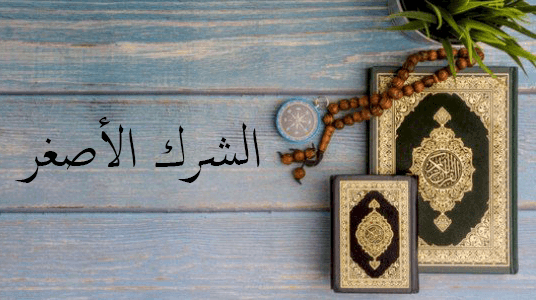 الشرك الأصغر